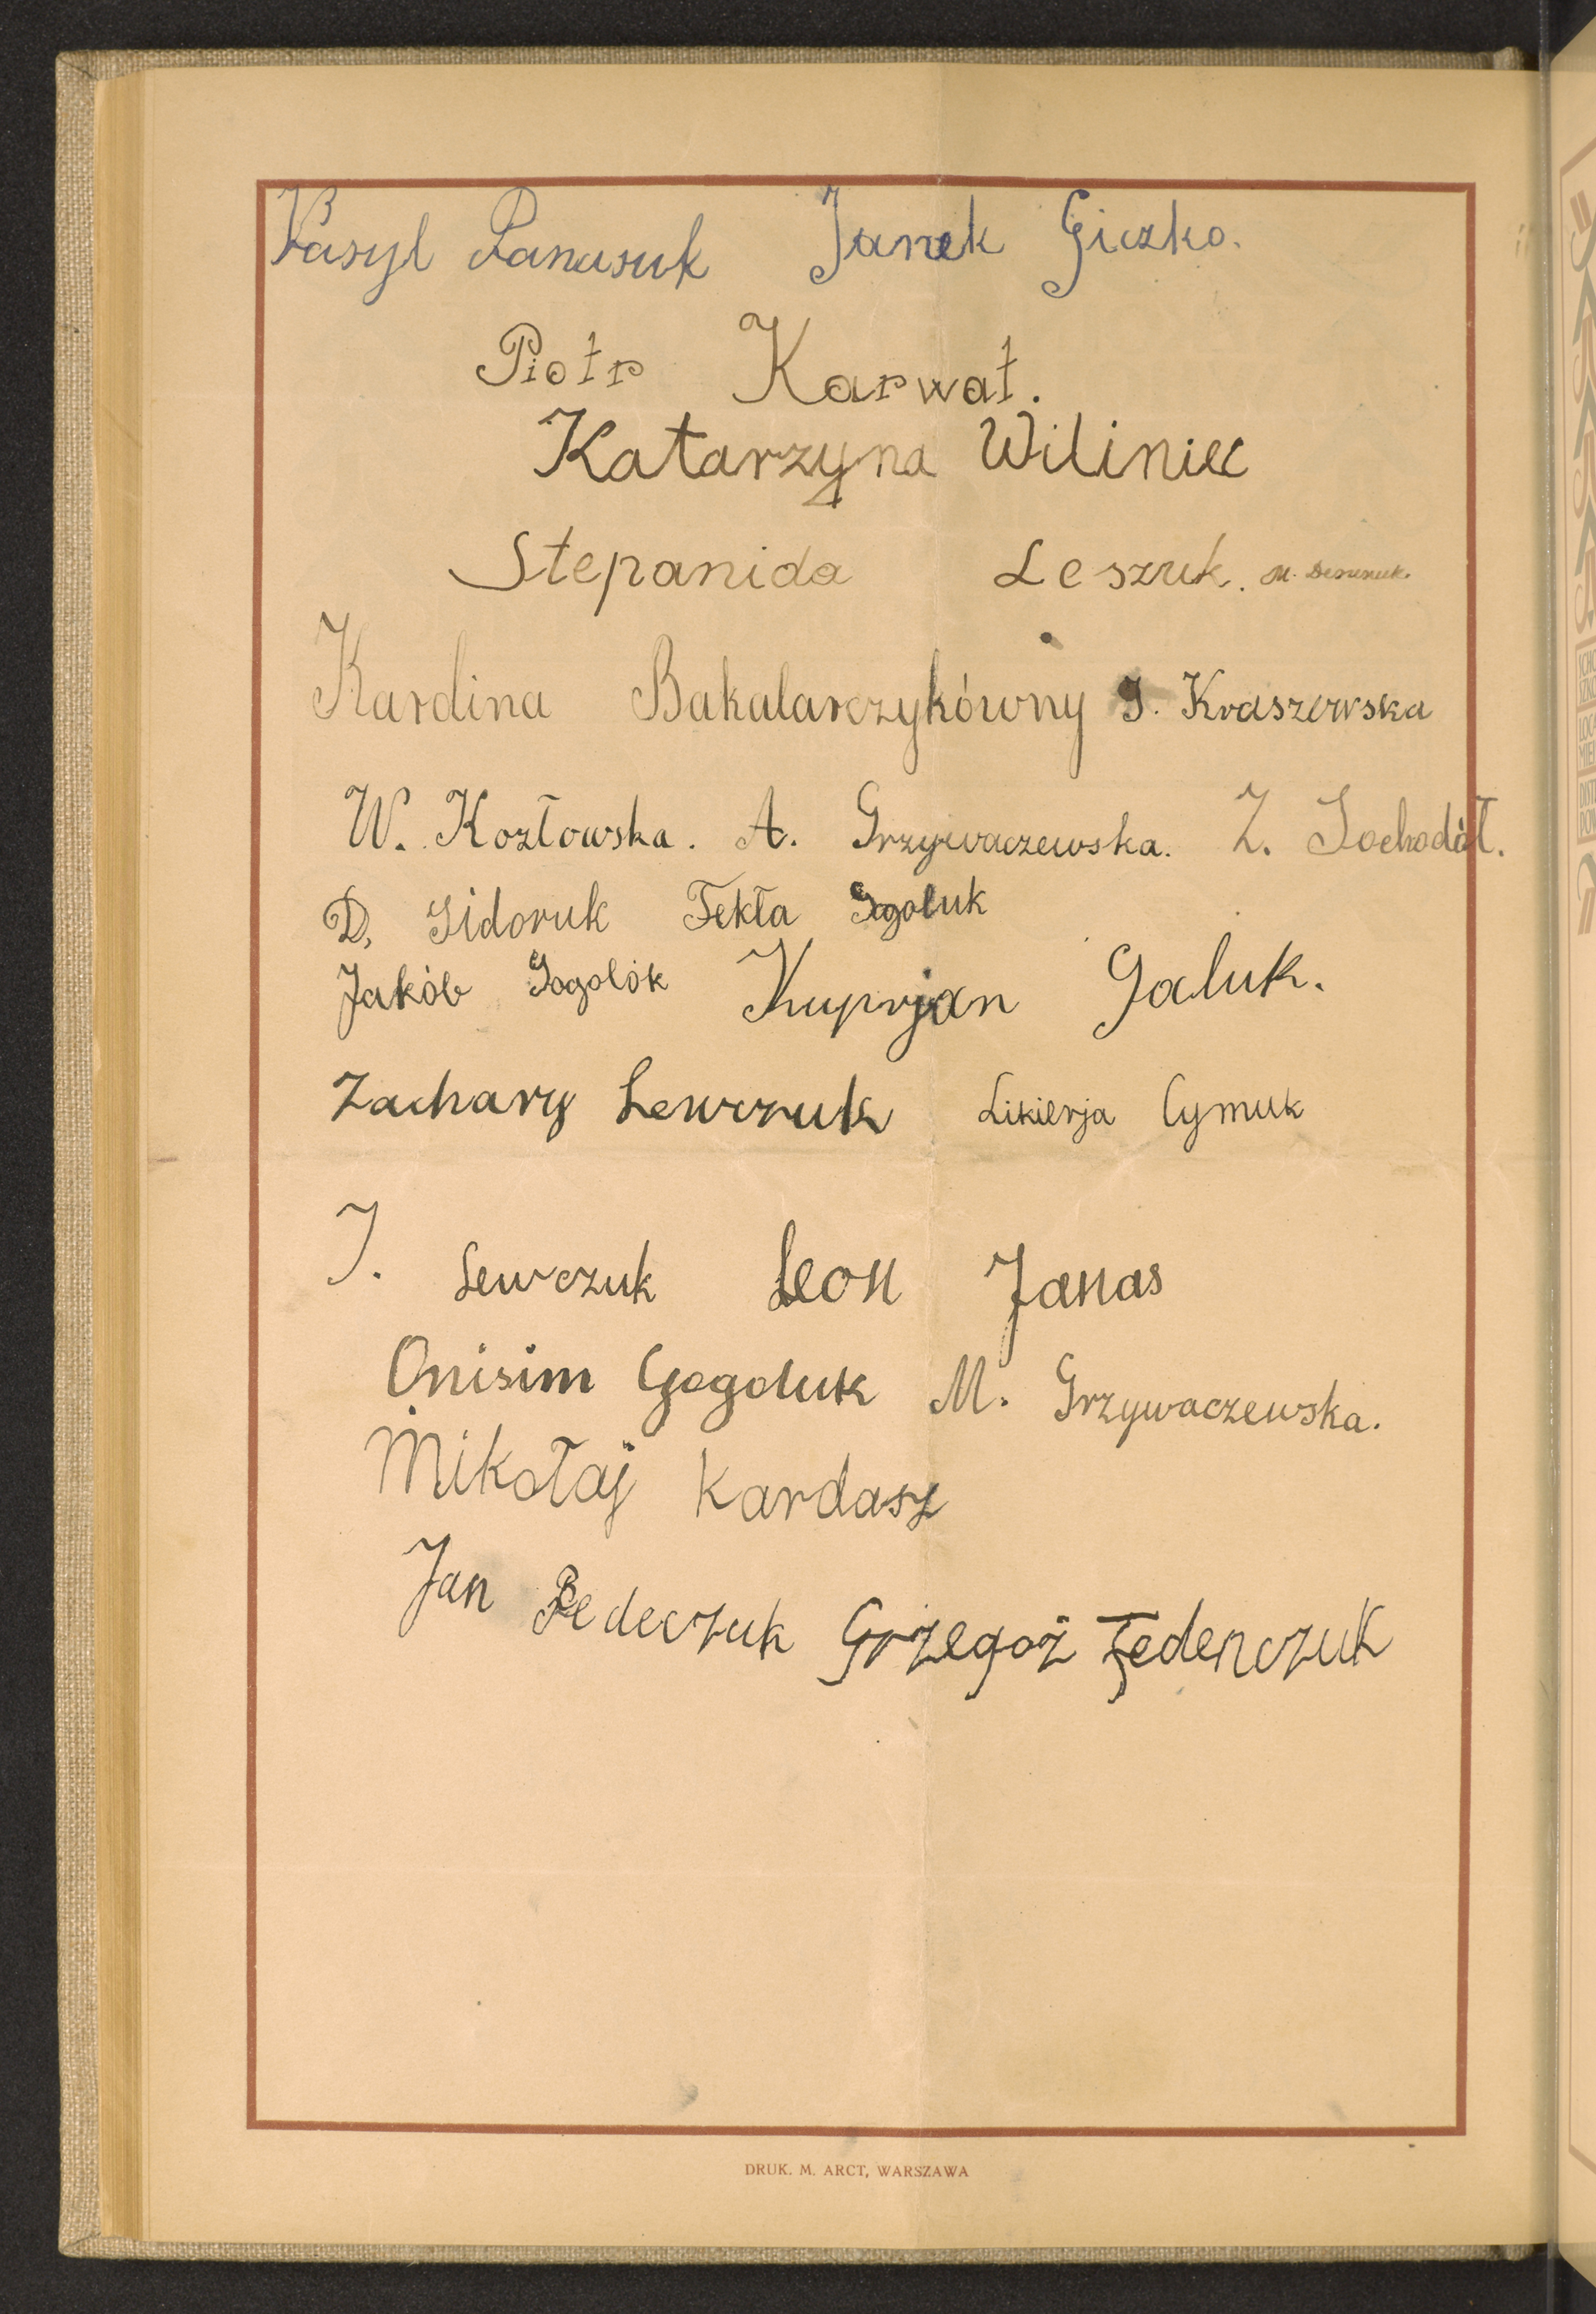 Wasyl Panasuk Janek Giczko.
Piotr Karwat.
Katarzyna Wiliniec
Stepanida Leszuk. M.
Karolina Bakalarczykówny J. Kraszewska
W. Kozłowska. A. Grzywaczewska. Z. Sochodół.
D. Sidoruk Tekła Gogoluk
Jakób Gogolók Kuprjan Galuk.
Zachary Lewczuk Likierja Cymuk
J. Lewczuk Leon Janas
Onisim Gogoluk M. Grzywaczewska.
Mikołaj Kardasz
Jan Grzegoż Fedenczuk
DRUK. M. ARCT, WARSZAWA